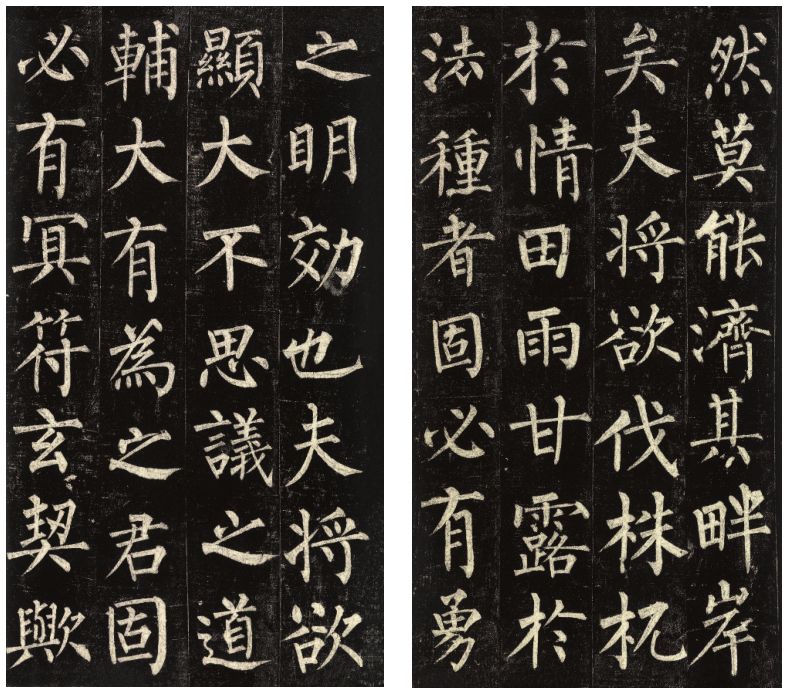 然莫能濟其畔岸
矣夫将欲伐株杌
於情田雨甘露於
法種者固必有勇
之明効也夫将欲
顯大不思議之道
輔大有為之君固
必有冥符玄契歟